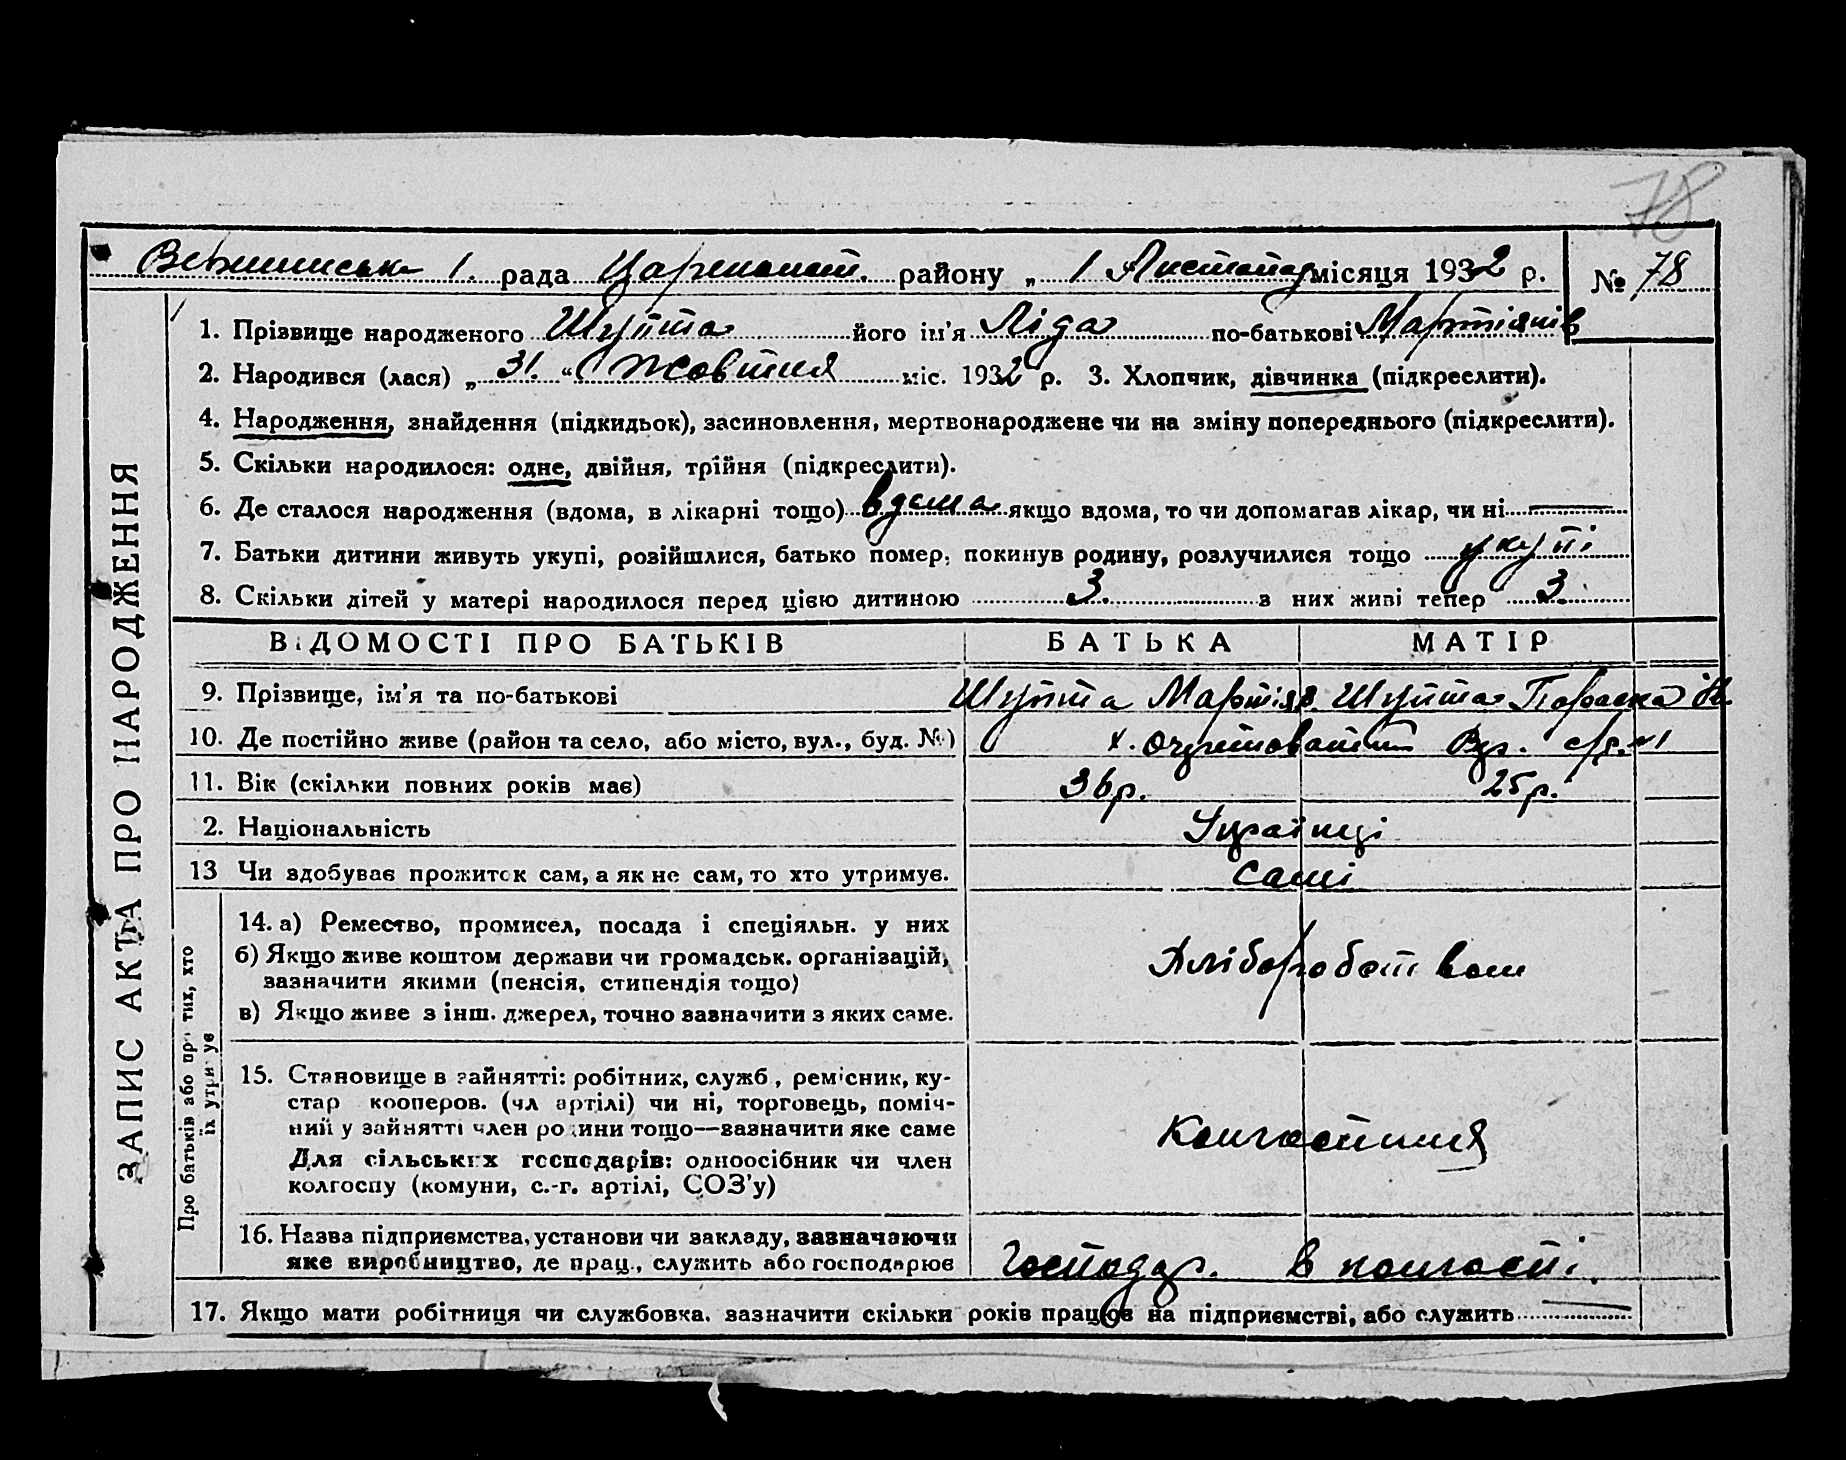 78
рада Царичанськ. району „ 1 Листопад місяця 1932 р. № 78
1. Прізвище народженого Шупта його ім'я Ліда по-батькові Мартіянів
2. Народився (лася) „ 31. “ Жовтня міс. 1932 р. 3. Хлопчик, дівчинка (підкреслити).
4. Народження, знайдення (підкидьок), засиновлення, мертвонароджене чи на зміну попереднього (підкреслити).
5. Скільки народилося: одне, двійня, трійня (підкреслити).
6. Де сталося народження (вдома, в лікарні тощо) вдома якщо вдома, то чи допомагав лікар, чи ні —
7. Батьки дитини живуть укупі, розійшлися, батько помер, покинув родину, розлучилися тощо укупі
8. Скільки дітей у матері народилося перед цією дитиною 3. з них живі тепер 3.
ВІДОМОСТІ ПРО БАТЬКІВ БАТЬКА МАТІР
9. Прізвище, ім'я та по-батькові Шупта Мартіян. Шупта Параска
10. Де постійно живе (район та село, або місто, вул., буд. №) х. с/р. №1
11. Вік (скільки повних років має) 36р. 25р.
2. Національність Українці
13 Чи здобуває прожиток сам, а як не сам, то хто утримує. Самі
14. а) Ремество, промисел, посада і спеціяльн. у них
б) Якщо живе коштом держави чи громадськ. організацій,
зазначити якими (пенсія, стипендія тощо) Хліборобством
в) Якщо живе з інш. джерел, точно зазначити з яких саме.
15. Становище в зайнятті: робітник, служб., ремісник, ку-
стар кооперов. (чл артілі) чи ні, торговець, поміч-
ний у зайнятті член родини тощо—зазначити яке саме
Для сільських господарів: одноосібник чи член
колгоспу (комуни, с.-г. артілі, СОЗ'у)
16. Назва підприємства, установи чи закладу, зазначаючи
яке виробництво, де прац., служить або господарює Господар. в колгоспі.
17. Якщо мати робітниця чи службовка. зазначити скільки років працює на підприємстві, або служить —
ЗАПИС АКТА ПРО НАРОДЖЕННЯ
Про батьків або про тих, хто
їх утримує